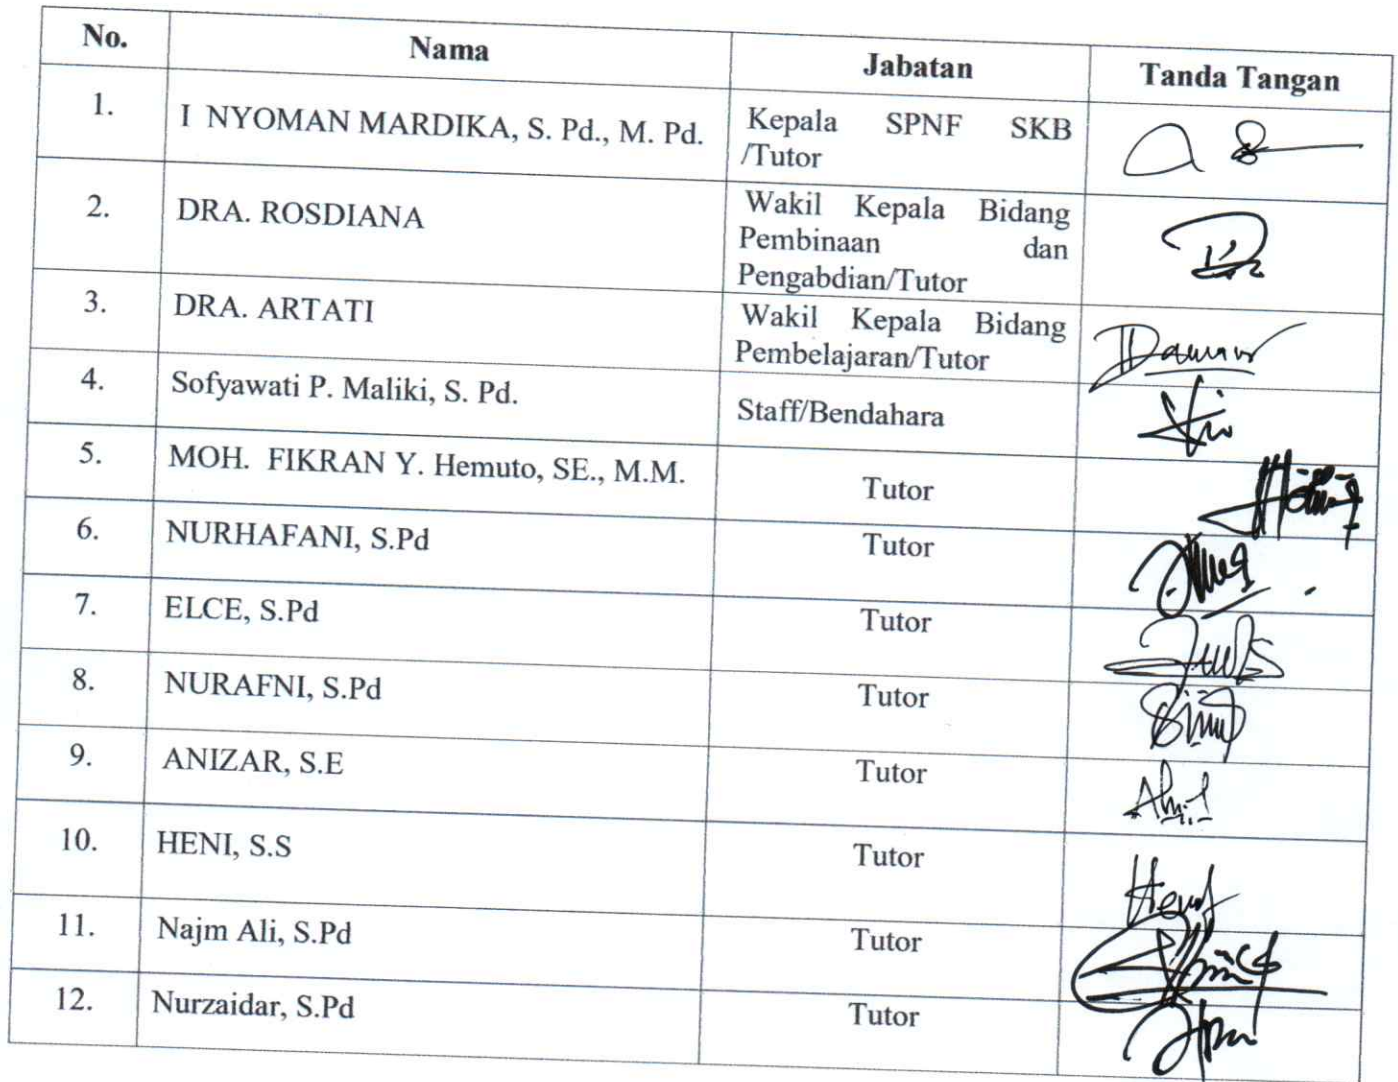 No. Nama Jabatan Tanda Tangan
1. I NYOMAN MARDIKA, S. Pd., M. Pd. Kepala SPNF SKB
/Tutor
2. DRA. ROSDIANA Wakil Kepala Bidang
Pembinaan dan
Pengabdian/Tutor
3. DRA. ARTATI Wakil Kepala Bidang
Pembelajaran/Tutor
4. Sofyawati P. Maliki, S. Pd. Staff/Bendahara
5. MOH. FIKRAN Y. Hemuto, SE., M.M. Tutor
6. NURHAFANI, S.Pd Tutor
7. ELCE, S.Pd Tutor
8. NURAFNI, S.Pd Tutor
9. ANIZAR, S.E Tutor
10. HENI, S.S Tutor
11. Najm Ali, S.Pd Tutor
12. Nurzaidar, S.Pd Tutor